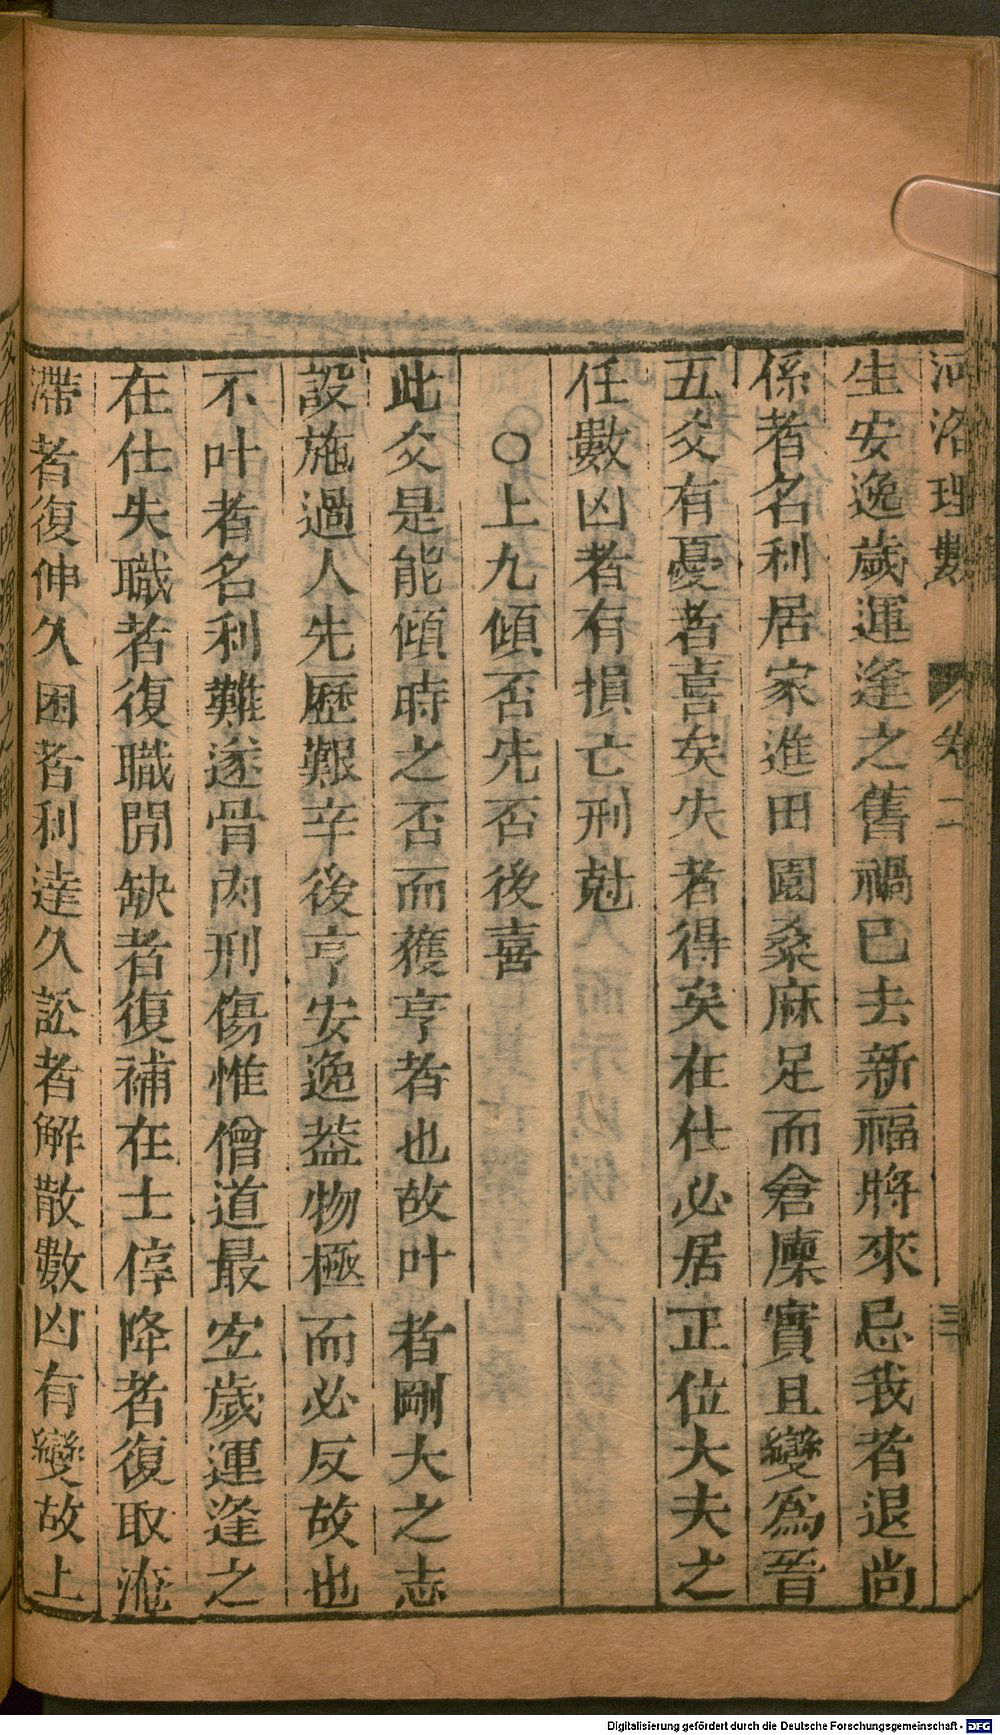 河洛理數 卷二 三
生安逸歲運逢之舊禍已去新福將來忌我者退尚
係者名利居家進田園桑麻足而倉廩實且變爲晉
五爻有憂者喜矣失者得矣在仕必居正位大夫之
任數凶者有損亡刑尅
○上九傾否先否後喜
此爻是能傾時之否而獲亨者也故叶者剛大之志
設施過人先歷艱辛後亨安逸葢物極而必反故也
不叶者名利難遂骨肉刑傷惟僧道最宜歲運逢之
在仕失職者復職閒缺者復補在士停降者復取淹
滯者復伸久困者利達久訟者解散數凶有變故上
Digitalisierung gefördert durch die Deutsche Forschungsgemeinschaft - DFG